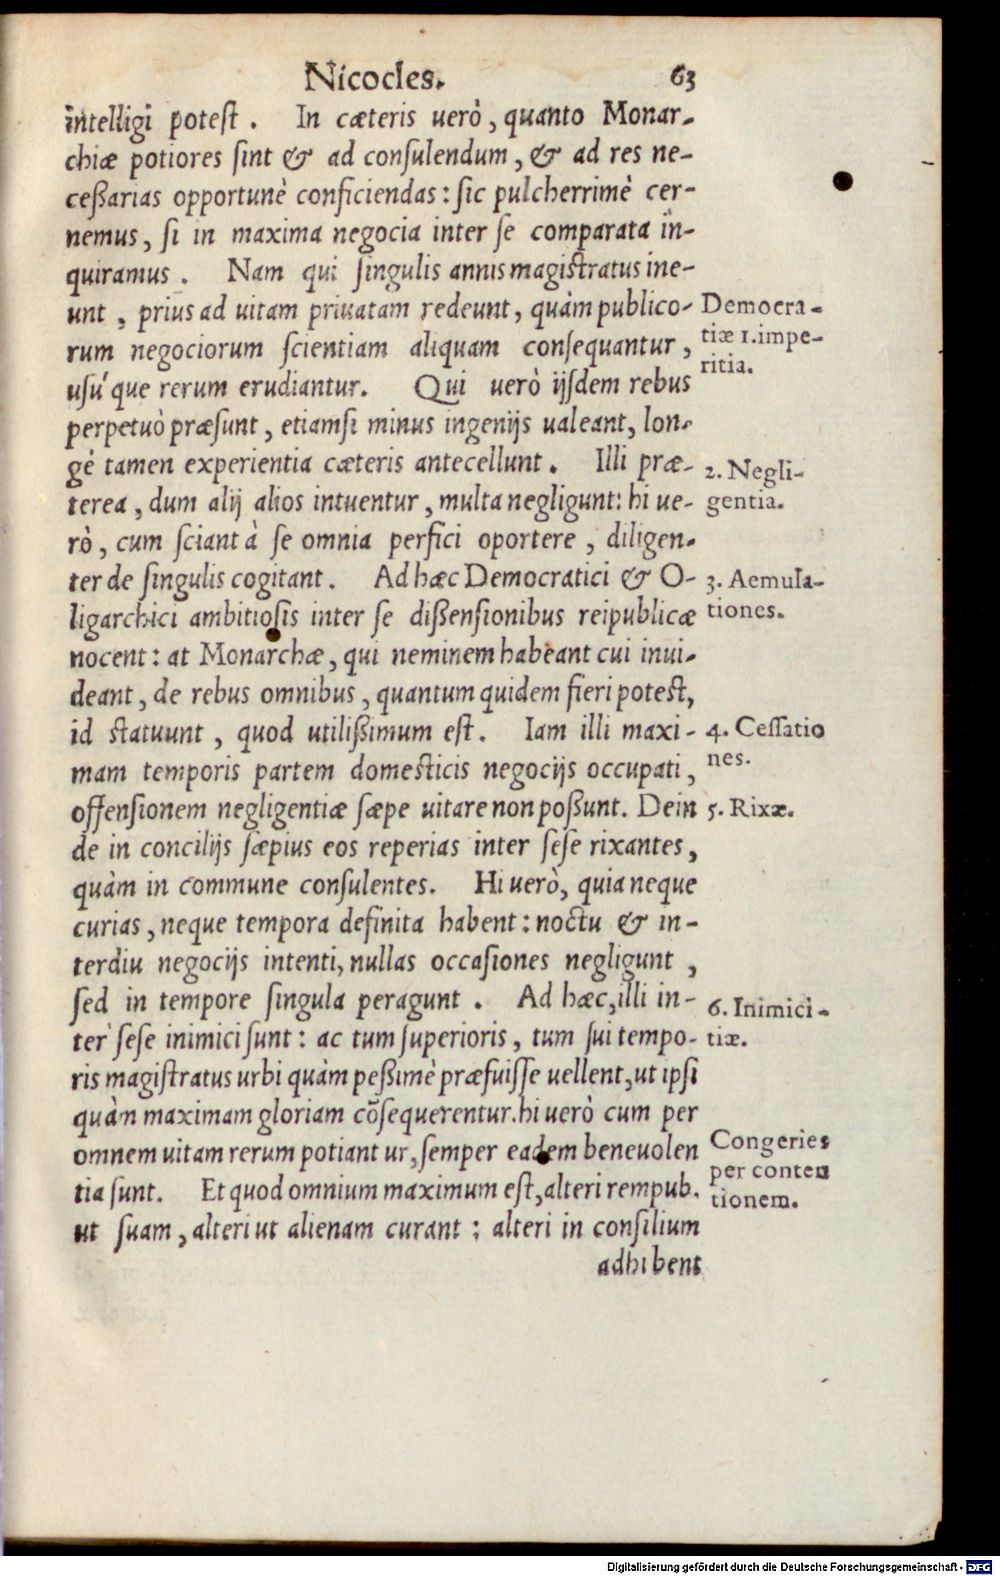 Nicocles. 63
intelligi potest. In cæteris uerò, quanto Monar-
chiæ potiores sint & ad consulendum, & ad res ne-
ceßarias opportunè conficiendas: sic pulcherrimè cer-
nemus, si in maxima negocia inter se comparata in-
quiramus. Nam qui singulis annis magistratus ine-
unt, prius ad uitam priuatam redeunt, quàm publico-
rum negociorum scientiam aliquam consequantur,
usú que rerum erudiantur. Qui uerò ijsdem rebus
perpetuò præsunt, etiamsi minus ingenijs ualeant, lon-
gè tamen experientia cæteris antecellunt. Illi præ-
terea, dum alij alios intuentur, multa negligunt: hi ue-
rò, cum sciant à se omnia perfici oportere, diligen-
ter de singulis cogitant. Ad hæc Democratici & O-
ligarchici ambitiosis inter se dißensionibus reipublicæ
nocent: at Monarchæ, qui neminem habeant cui inui-
deant, de rebus omnibus, quantum quidem fieri potest,
id statuunt, quod utilißimum est. Iam illi maxi-
mam temporis partem domesticis negocijs occupati,
offensionem negligentiæ sæpe uitare non poßunt. Dein
de in concilijs sæpius eos reperias inter sese rixantes,
quàm in commune consulentes. Hi uerò, quia neque
curias, neque tempora definita habent: noctu & in-
terdiu negocijs intenti, nullas occasiones negligunt,
sed in tempore singula peragunt. Ad hæc, illi in-
ter sese inimici sunt: ac tum superioris, tum sui tempo-
ris magistratus urbi quàm peßimè præfuisse uellent, ut ipsi
quàm maximam gloriam cõsequerentur. hi uerò cum per
omnem uitam rerum potiantur, semper eadem beneuolen
tia sunt. Et quod omnium maximum est, alteri rempub.
ut suam, alteri ut alienam curant: alteri in consilium
adhibent
Democra-
tiæ 1. impe-
ritia.
2. Negli-
gentia.
3. Aemula-
tiones.
4. Cessatio
nes.
5. Rixæ.
6. Inimici-
tiæ.
Congeries
per conten
tionem.
Digitalisierung gefördert durch die Deutsche Forschungsgemeinschaft - DFG